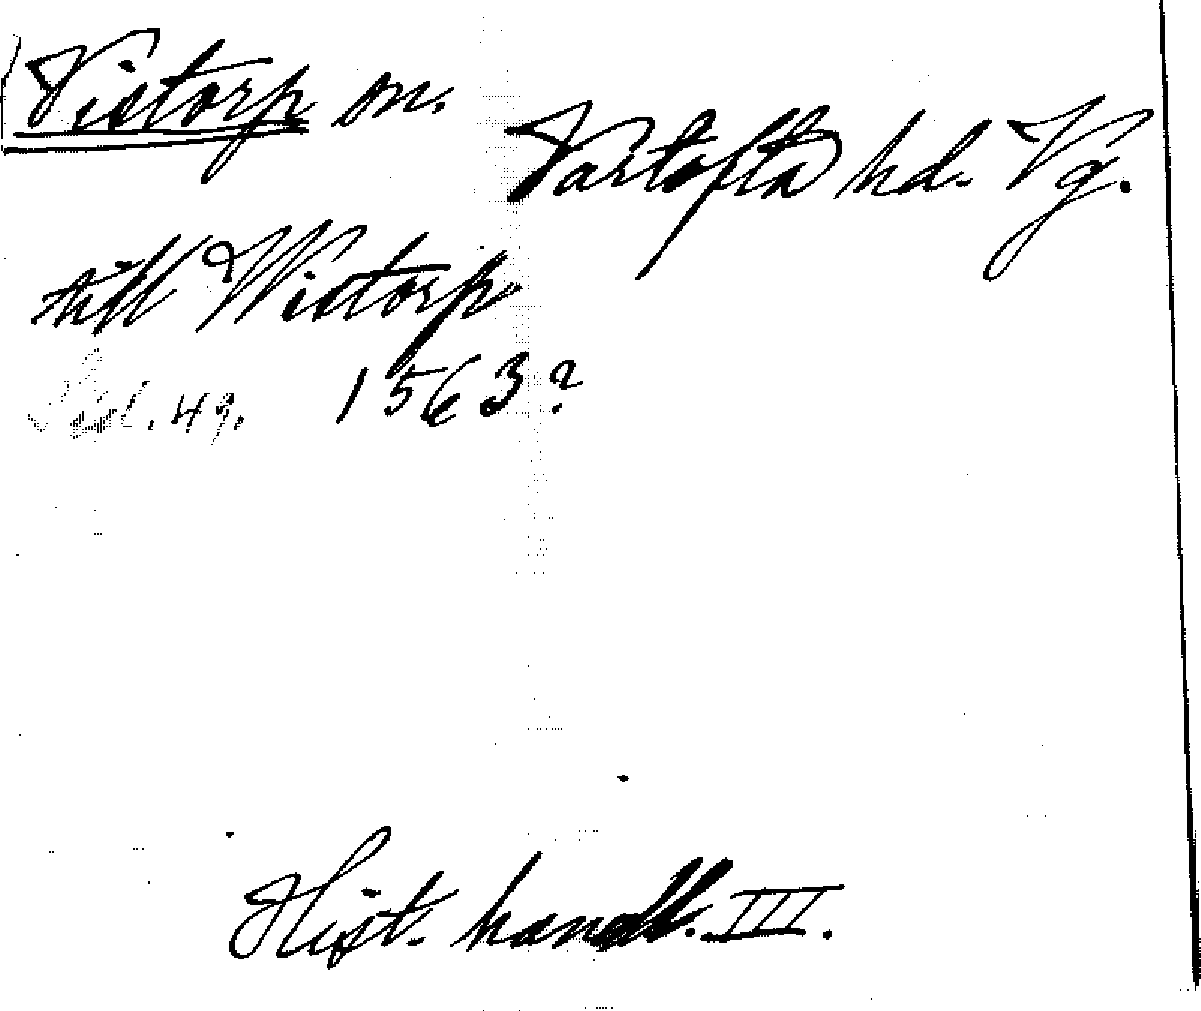 Vistorp sn.
Vartofta hd. Vg.
till Wistorp
1563?
sid. 49.
Hist. handl. III.